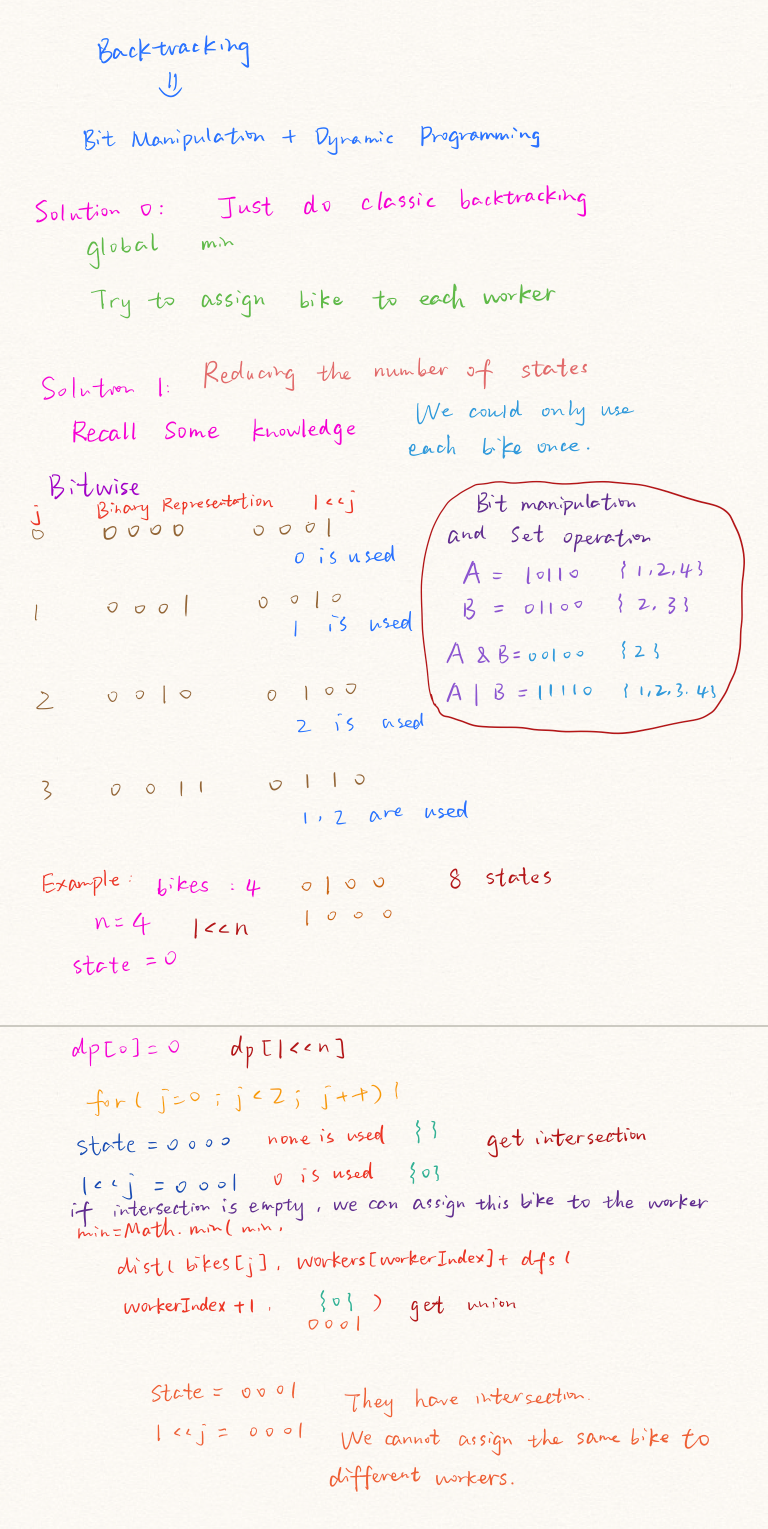 Backtracking
⇓
Bit Manipulation + Dynamic Programming
Solution 0: Just do classic backtracking
global min
Try to assign bike to each worker
Solution 1: Reducing the number of states
Recall Some knowledge
We could only use
each bike once.
Bitwise
j Binary Representation 1<<j
0 0000 0001
0 is used
1 0001 0010
1 is used
2 0010 0100
2 is used
3 0011 0110
1, 2 are used
Bit manipulation
and Set operation
A = 10110 {1,2,4}
B = 01100 {2,3}
A & B = 00100 {2}
A | B = 11110 {1,2,3.4}
Example: bikes : 4 0100 8 states
n=4 1<<n 1000
state = 0
dp[0] = 0 dp[1<<n]
for( j=0 ; j<2 ; j++) {
State = 0000 none is used { } get intersection
1<<j = 0001 0 is used {0}
if intersection is empty, we can assign this bike to the worker
min=Math.min( min,
dist( bikes[j], workers[workerIndex] + dfs (
workerIndex +1, {0} ) get union
0001
State = 0001 They have intersection.
1<<j = 0001 We cannot assign the same bike to
different workers.